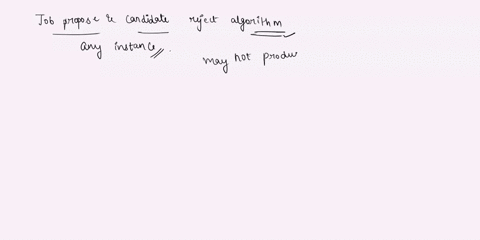 Job propose & candidate reject algorithm
any instance.
may not produ